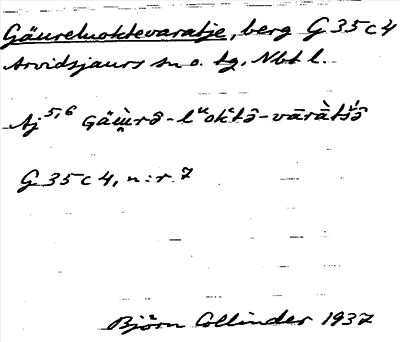 Gäureluoktevaratje, berg G 35 c 4
Arvidsjaurs sn o. tg, Nbt l.
Aj 5,6 Gäù̯rə̑-luok‘tə̑-vārā̀tśə̑
G 35 c 4, n:r 7
Björn Collinder 1937